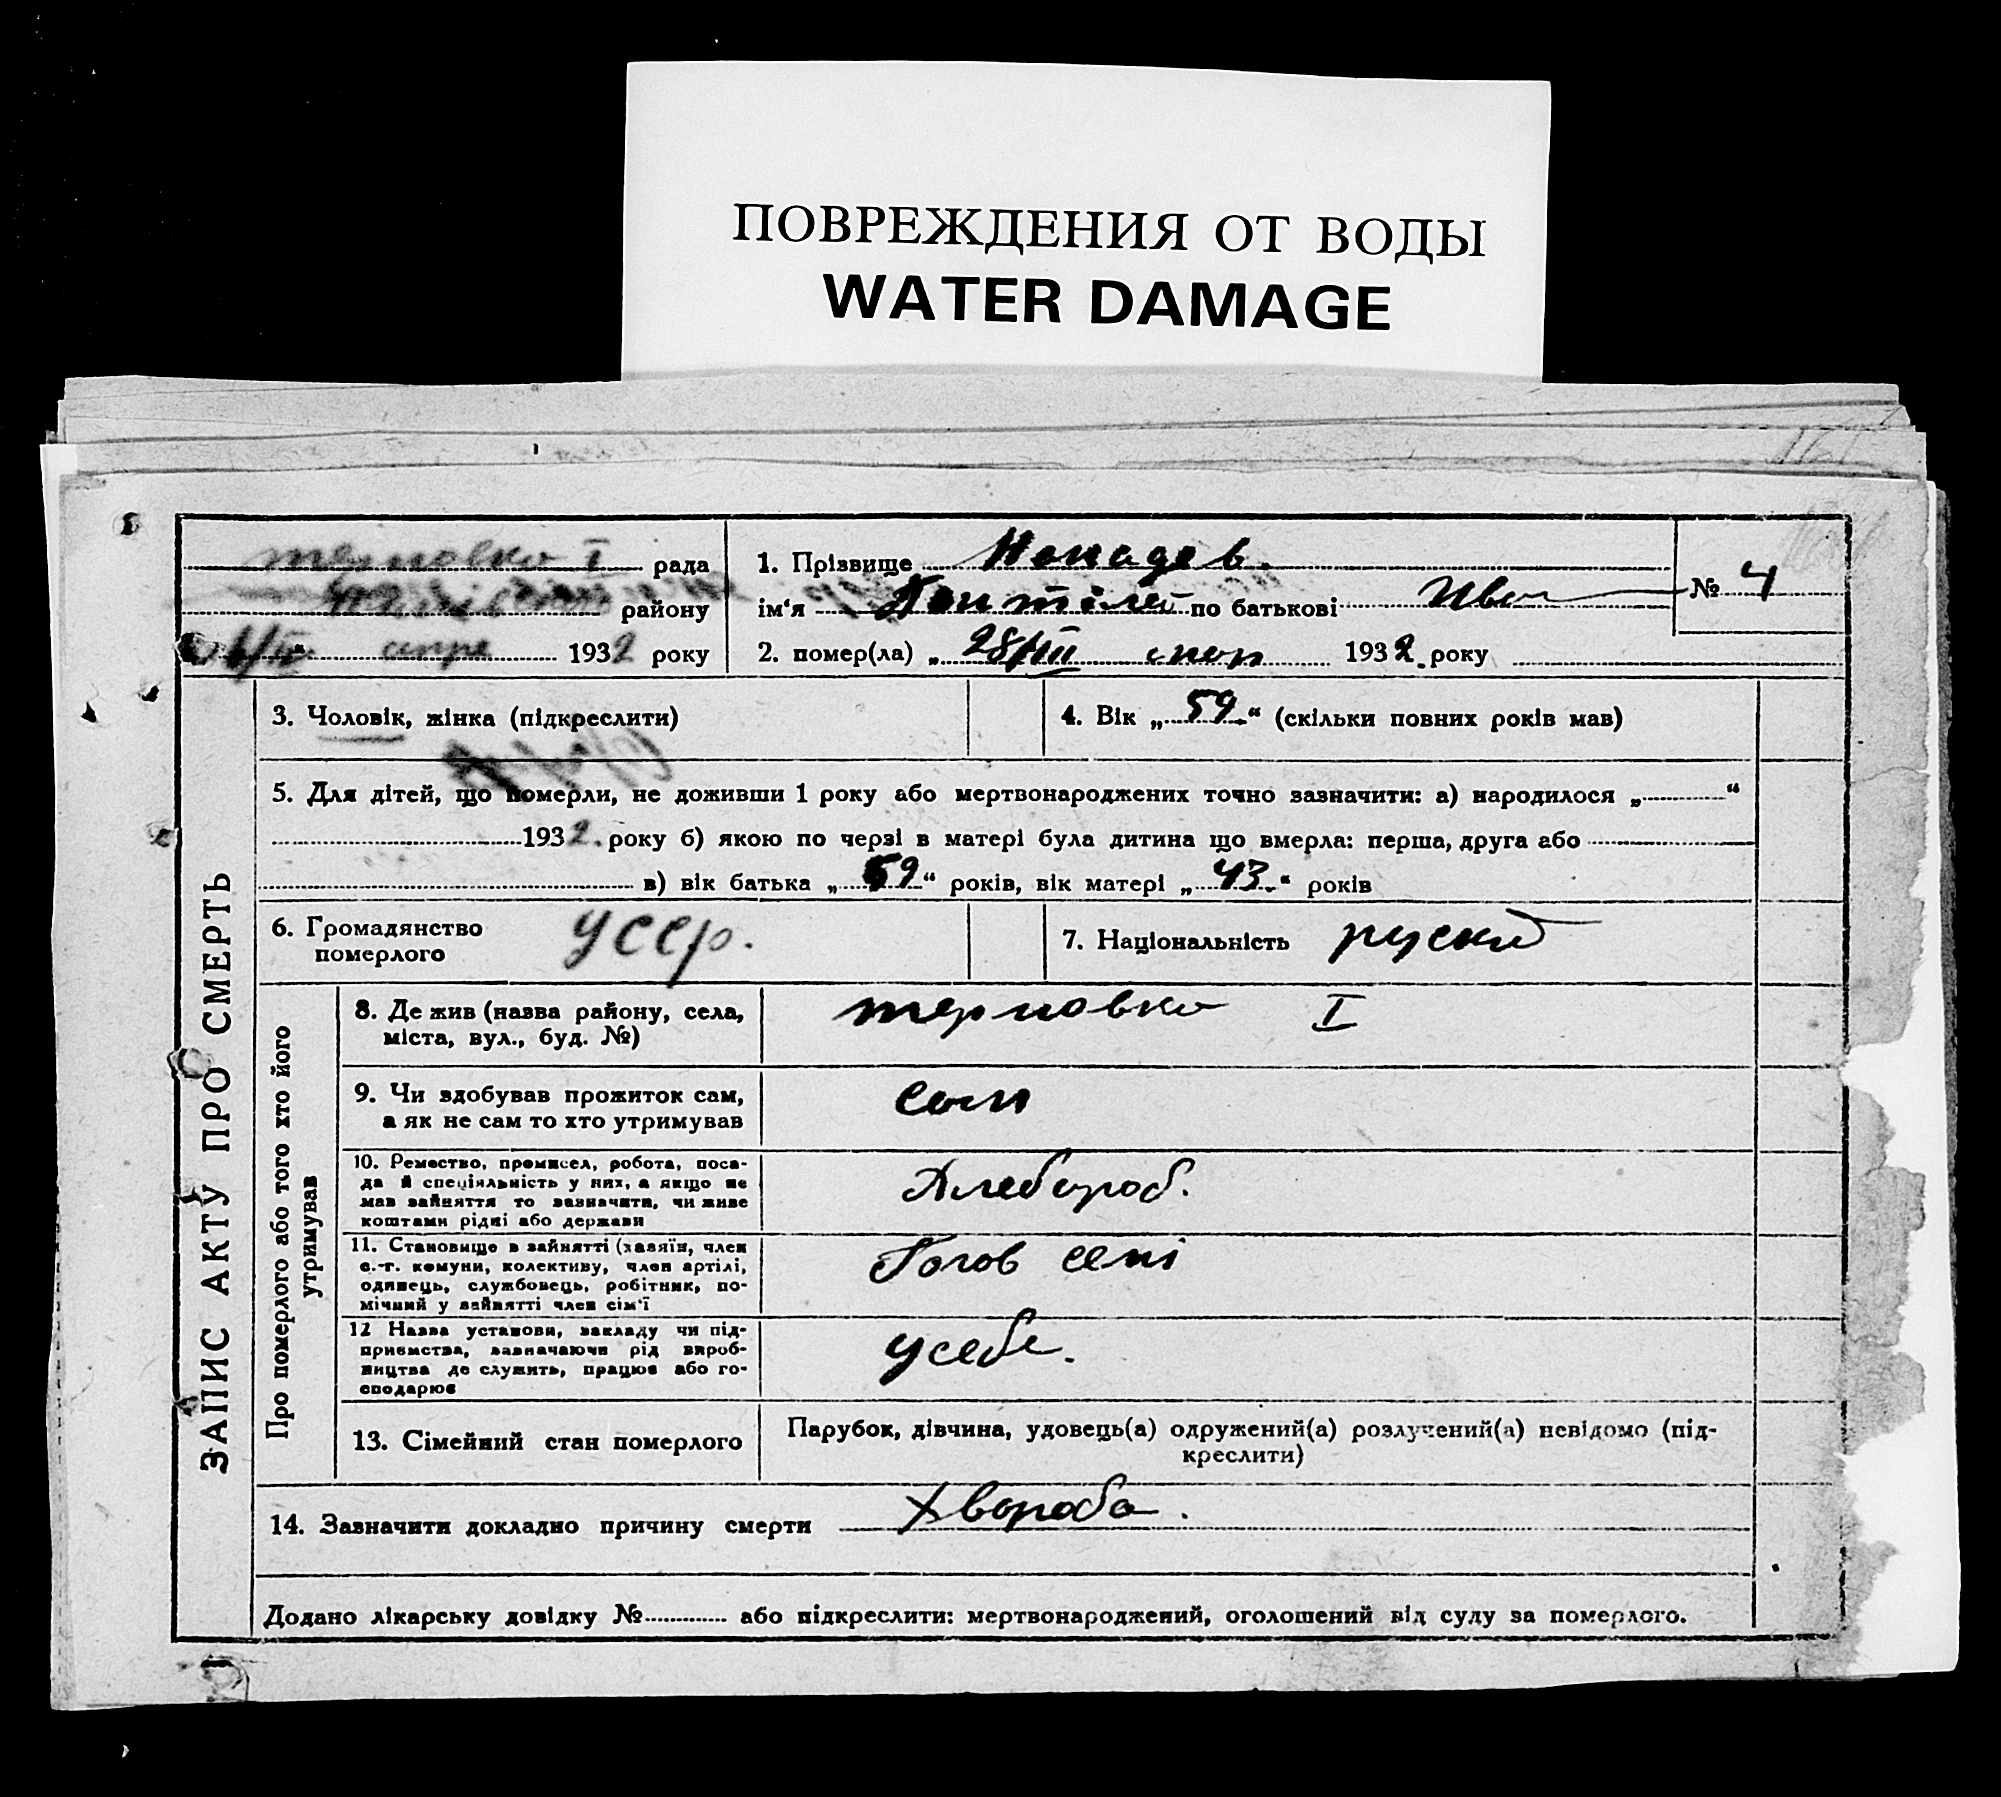 ПОВРЕЖДЕНИЯ ОТ ВОДЫ
WATER DAMAGE
терновка I рада
району
1932 року
1. Прізвище
ім‘я по батькові Иван
№ 4
2. помер(ла) „ 28/III 1932. року
ЗАПИС АКТУ ПРО СМЕРТЬ
3. Чоловік, жінка (підкреслити)
4. Вік „ 59 “ (скільки повних років мав)
5. Для дітей, що померли, не доживши 1 року або мертвонароджених точно зазначити: а) народилося „ “
1932. року б) якою по черзі в матері була дитина що вмерла: перша, друга або
в) вік батька „ 59 “ років, вік матері „ 43. “ років
6. Громадянство
померлого
усср.
7. Національність руский
Про померлого або того хто його
утримував
8. Де жив (назва району, села,
міста, вул., буд. №)
терновка I
9. Чи здобував прожиток сам,
а як не сам то хто утримував
сам
10. Ремество, промисел, робота, поса-
да й спеціяльність у них, а якщо не
мав зайняття то зазначити, чи живе
коштами рідні або держави
Хлебороб.
11. Становище в зайнятті (хазяїн, член
с.-г. комуни, колективу, член артілі,
одинець, службовець, робітник, по-
мічний у зайнятті член сім‘ї
Голов семі
12 Назва установи, закладу чи під-
приємства, зазначаючи рід вироб-
ництва де служить, працює або го-
сподарює
усебе.
13. Сімейний стан померлого
Парубок, дівчина, удовець(а) одружений(а) розлучений(а) невідомо (під-
креслити)
14. Зазначити докладно причину смерти Хвороба.
Додано лікарську довідку № або підкреслити: мертвонароджений, оголошений від суду за померлого.